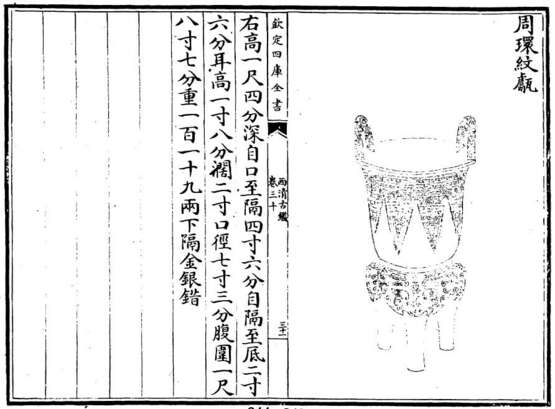 周環紋甗
欽定四庫全書
西清古鑑
卷三十
三十二
右高一尺四分深自口至隔四寸六分自隔至底二寸
六分耳高一寸八分濶二寸口徑七寸三分腹圍一尺
八寸七分重一百一十九兩下隔金銀錯